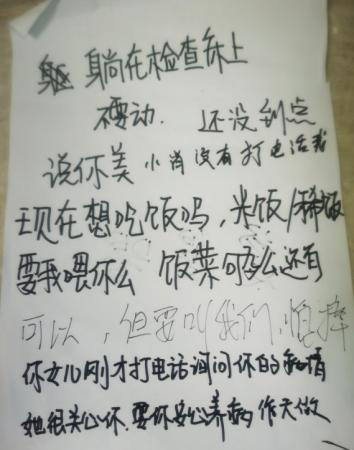 躺在检查床上
不要动. 还没到点
说你美 小肖没有打电话我
现在想吃饭吗,米饭/稀饭
要我喂你么 饭菜可怎么还有
可以,但要叫我们,怕摔
你女儿刚才打电话询问你的病情
她很关心你.要你安心养病 昨天做